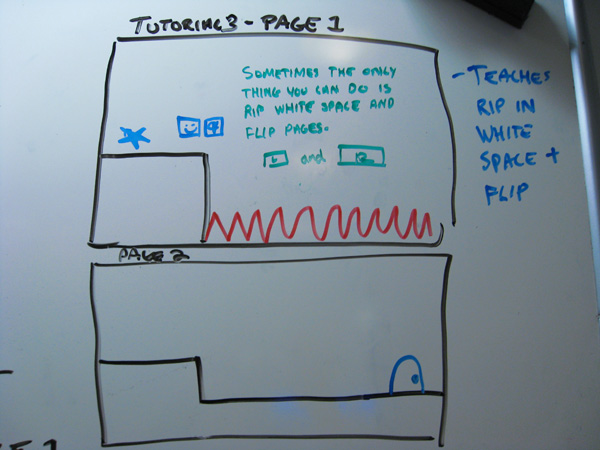 TUTORING 3 - PAGE 1
SOMETIMES THE ONLY
THING YOU CAN DO IS
RIP WHITE SPACE AND
FLIP PAGES.
and
- TEACHES
RIP IN
WHITE
SPACE +
FLIP
PAGE 2